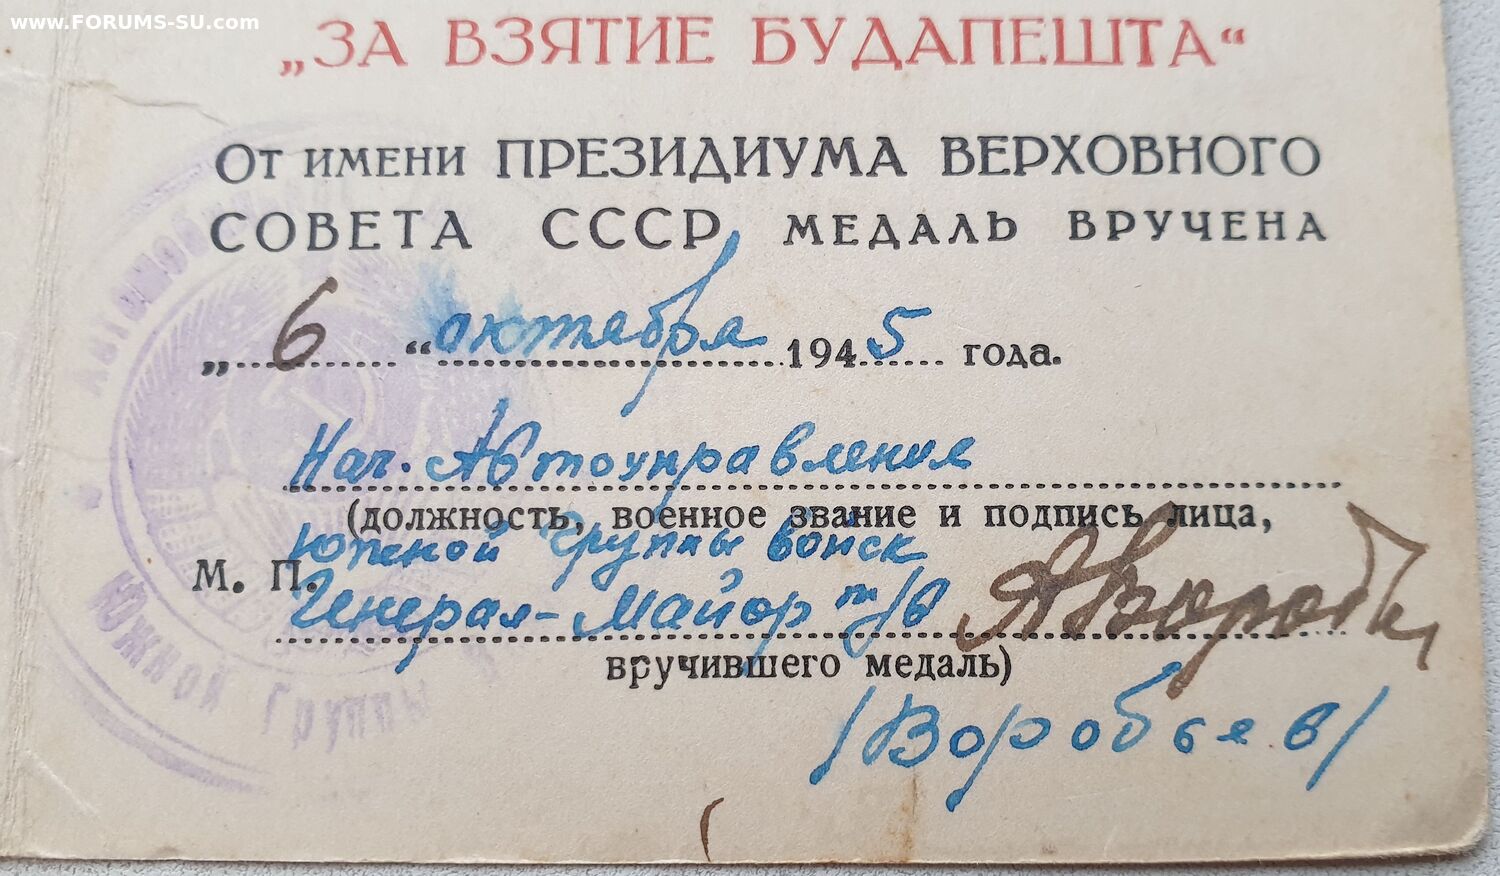 www.FORUMS-SU.com
„ЗА ВЗЯТИЕ БУДАПЕШТА“
От имени ПРЕЗИДИУМА ВЕРХОВНОГО
СОВЕТА СССР МЕДАЛЬ ВРУЧЕНА
„ 6 “ октября 1945 года.
Нач. Автоуправления
(должность, военное звание и подпись лица,
Южной Группы войск
М. П.
Генерал-Майор т/в
вручившего медаль)
/Воробьев/
Южной Группы